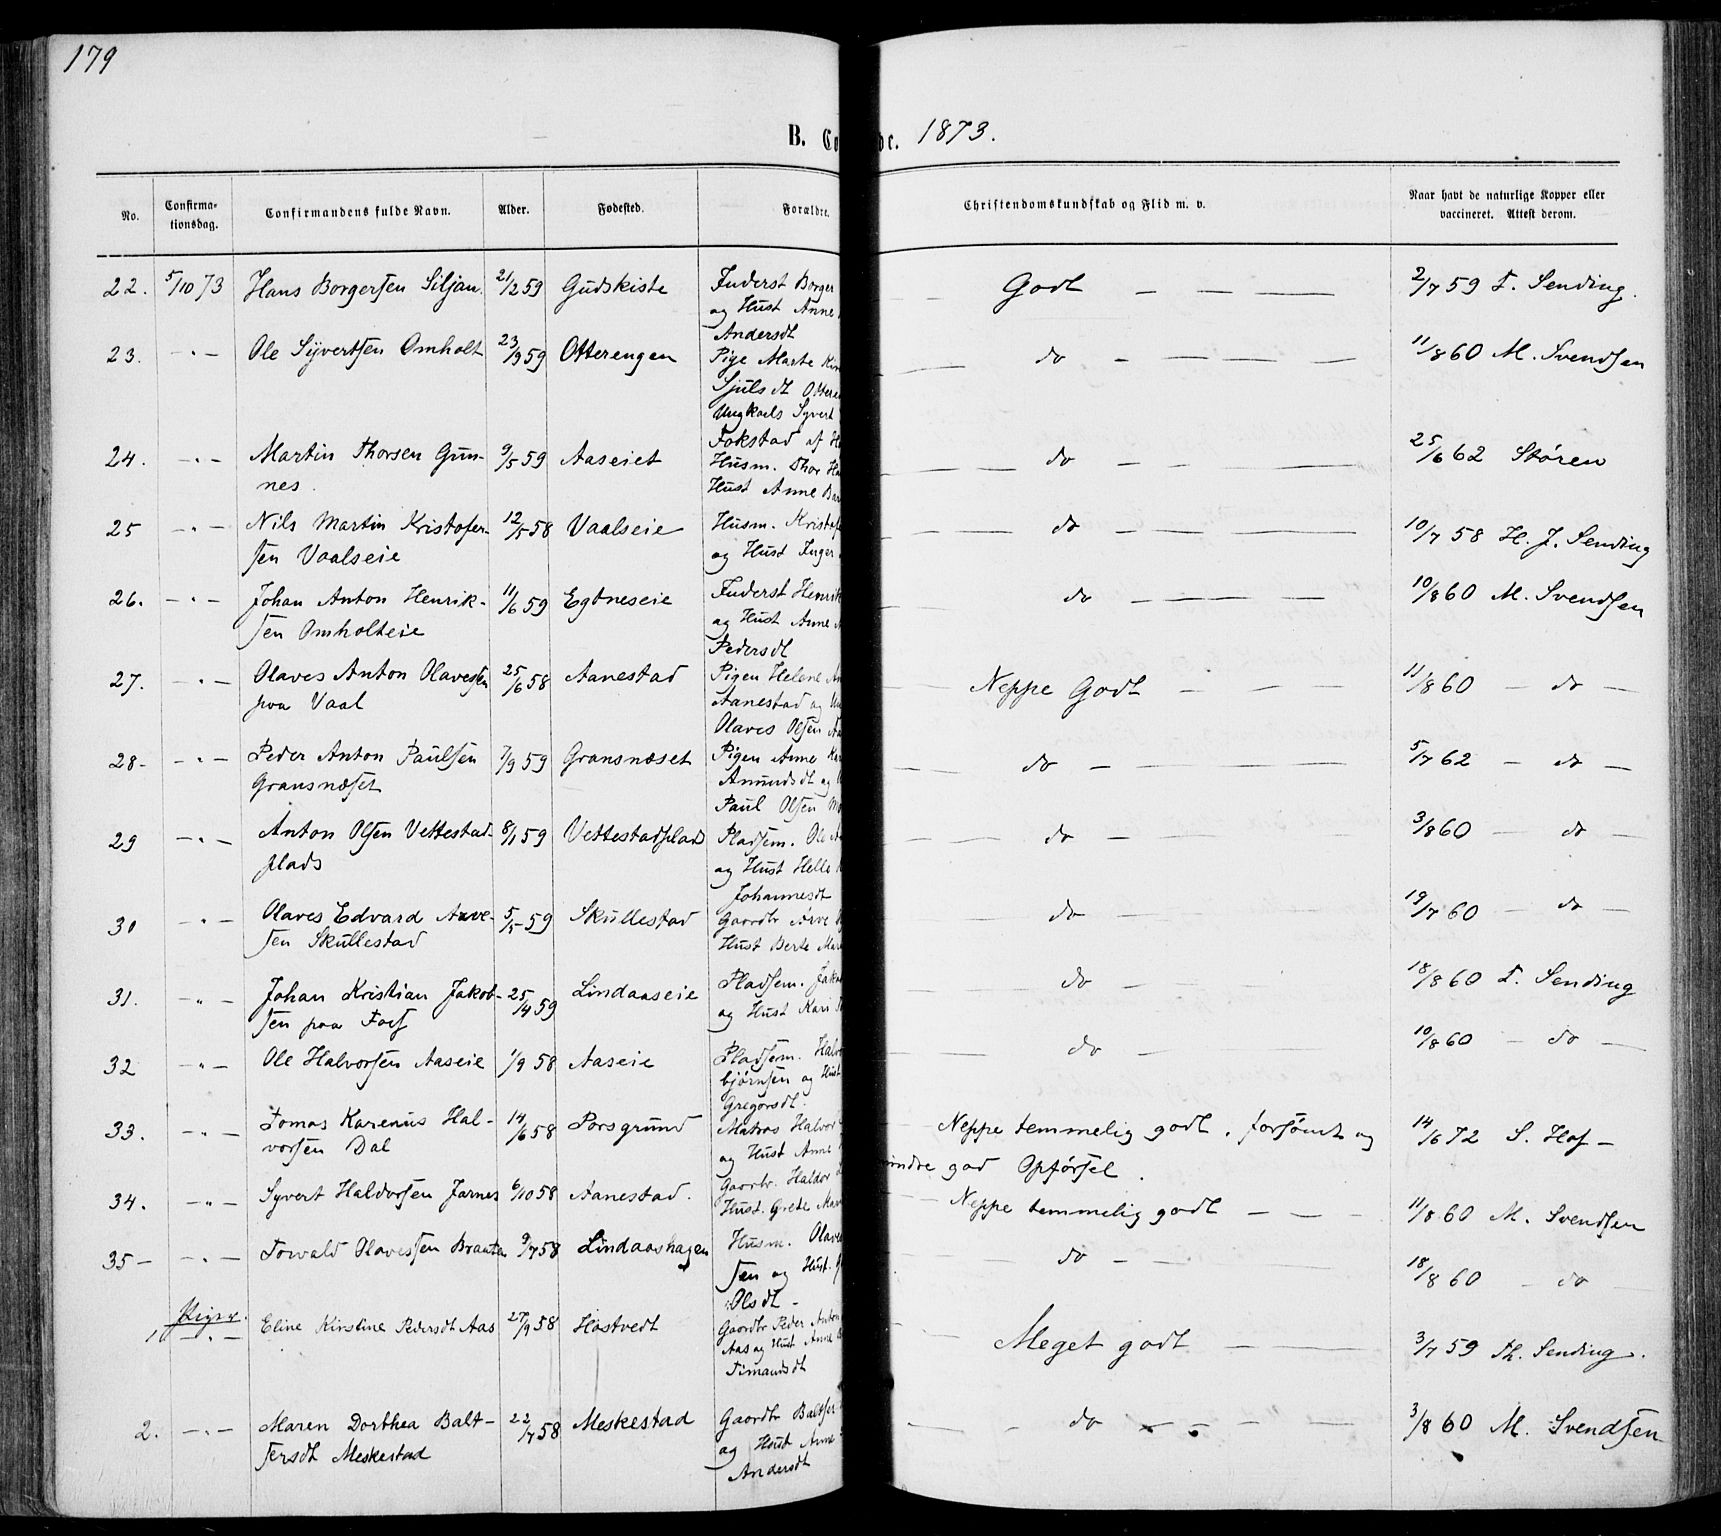 179
B. Co de. 1873.
No. Confirma-tionsdag. Confirmandens fulde Navn. Alder. Fødested. Forældre. Christendomskundskab og Flid m. v. Naar havt de naturlige Kopper eller vaccineret. Attest derom.
22. 5/10 73 Hans Borgersen Siljan. 21/2 59 Gudskiste Inderst Borger — Godt — — — 2/7 59 T. Sending.
og Hust Anne
Andersdt
23. -"- Ole Syvertsen Omholt 23/9 59 Otterengen Pige Marte Kir — do — — — 11/8 60 M. Svendsen
Sjulsdt Ottere
Ungkarls Syvert
Fokstad af H
24. -"- Martin Thorsen Gun- 9/5 59 Aaseiet Husm. Thor Ha — do — — — 25/6 62 Støren
nes. Hust Anne Bar
25 -"- Nils Martin Kristofer- 12/5 58 Vaalseie Husm. Kristofe — do — — — 10/7 58 H. J. Sending
sen Vaalseie og Hust Inger
26. -"- Johan Anton Henrik- 11/6 59 Egtneseie Inderst Henrik — do — — — 10/8 60 M. Svendsen
sen Omholteie og Hust Anne
Pedersdt
27. -"- Olaves Anton Olavessen 25/6 58 Aanestad Pigen Helene An — Neppe Godt — — — 11/8 60 — do —
paa Vaal Aanestad og Un
Olaves Olsen
28- -"- Peder Anton Paulsen 7/9 59 Gransnæset Pigen Anne Kar — do — — — 5/7 62 — do —
Gransnæset Amundsdt og
Paul Olsen
29 -"- Anton Olsen Vettestad- 8/1 59 Vettestadplads Pladsem. Ole — do — 3/8 60 — do —
plads og Hust Helle
Johannesdt
30 -"- Olaves Edvard Arve- 5/5 59 Skullestad Gaardbr Arve — do — 19/7 60 — do —
sen Skullestad Hust Berte Mar
31. -"- Johan Kristian Jakob- 25/4 59 Lindaaseie Pladsem. Jako — do — 18/8 60 T. Sending
sen paa Fos og Hust Kari
32 -"- Ole Halvorsen Aaseie 1/9 58 Aaseie Pladsem. Halvo — do — 10/8 60 — do —
bjørnsen og Hust
Gregorsdt.
33. -"- Tomas Karenius Hal- 14/6 58 Porsgrund Matros Halvor Neppe temmelig godt. forsømt og 14/6 72 S. Hof —
vorsen Dal og Hust Anne mindre god Opførsel.
34. -"- Syvert Haldorsen Jarnes 6/10 58 Aanestad. Gaardbr. Haldor — Neppe temmelig godt — — — 11/8 60 M. Svendsen
Hust. Grete Mar
35- -"- Torvald Olavessen Braata 9/7 58 Lindaashagen Husm. Olave — do — — 18/8 60 — do —
sen og Hust.
Olsdt —
Piger.
1 -"- Eline Kirstine Pedersdt Aas 27/9 58 Høstvedt Gaardbr Peder Anton — Meget godt — — 3/7 59 Th. Sending.
Aas og Hust Anne
Timansdt
2. -"- Maren Dorthea Balt- 22/7 58 Meskestad Gaardbr Baltser — do — — 3/8 60 M. Svendsen
sersdt Meskestad og Hust Anne
Andersdt